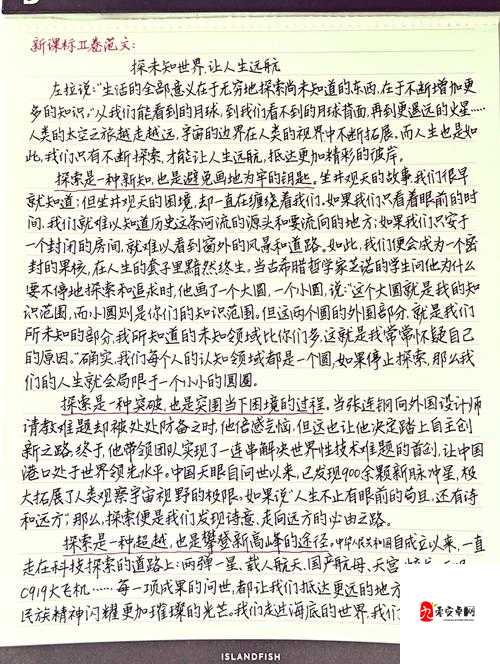 新课标Ⅱ卷范文:
探未知世界,让人生远航
左拉说:"生活的全部意义在于无穷地探索尚未知道的东西,在于不断增加更
多的知识。"从我们能看到的月球,到我们看不到的月球背面,再到更遥远的火星……
人类的太空之旅越走越远,宇宙的边界在人类的视界中不断拓展。而人生也是如
此,我们只有不断探索,才能让人生远航,抵达更加精彩的彼岸。
探索是一种新知,也是避免画地为牢的钥匙。坐井观天的故事我们很早
就知道;但坐井观天的困境,却一直在缠绕着我们。如果我们只看着眼前的时
间,我们就难以知道历史这条河流的源头和要流向的地方;如果我们只安于
一个封闭的房间,就难以看到窗外的风景和道路。如此,我们便会成为一个密
封的果核,在人生的套子里黯然终生。当古希腊哲学家芝诺的学生问他为什么
要不停地探索和追求时,他画了一个大圆,一个小圆,说:"这个大圆就是我的知
识范围,而小圆则是你们的知识范围。但这两个圆的外围部分,就是我们
所未知的部分,我所知道的未知领域比你们多,这就是我常常怀疑自己
的原因。"确实,我们每个人的认知领域都是一个圆,如果停止探索,那么我
们的人生就会局限于一个小小的圆圈。
探索是一种突破,也是突围当下困境的过程。当张连钢向外国设计师
请教难题却被处处防备之时,他倍感气恼,但这也让他决定踏上自主创
新之路,终于,他带领团队实现了一连串解决世界性技术难题的首创,让中国
港口处于世界领先水平。中国天眼自问世以来,已发现900余颗新脉冲星,极
大拓展了人类观察宇宙视野的极限。如果说"人生不止有眼前的苟且,还有诗
和远方",那么,探索便是我们发现诗意,走向远方的必由之路。
探索是一种超越,也是攀登新高峰的途径。中华人民共和国自成立以来,一直
走在科技探索的道路上:两弹一星、载人航天、国产航母、天宫
C919大飞机……每一项成果的问世,都让我们抵达更远的地方
民族精神闪耀更加璀璨的光芒。我们走进海底的世界,我们
ISLANDFISH